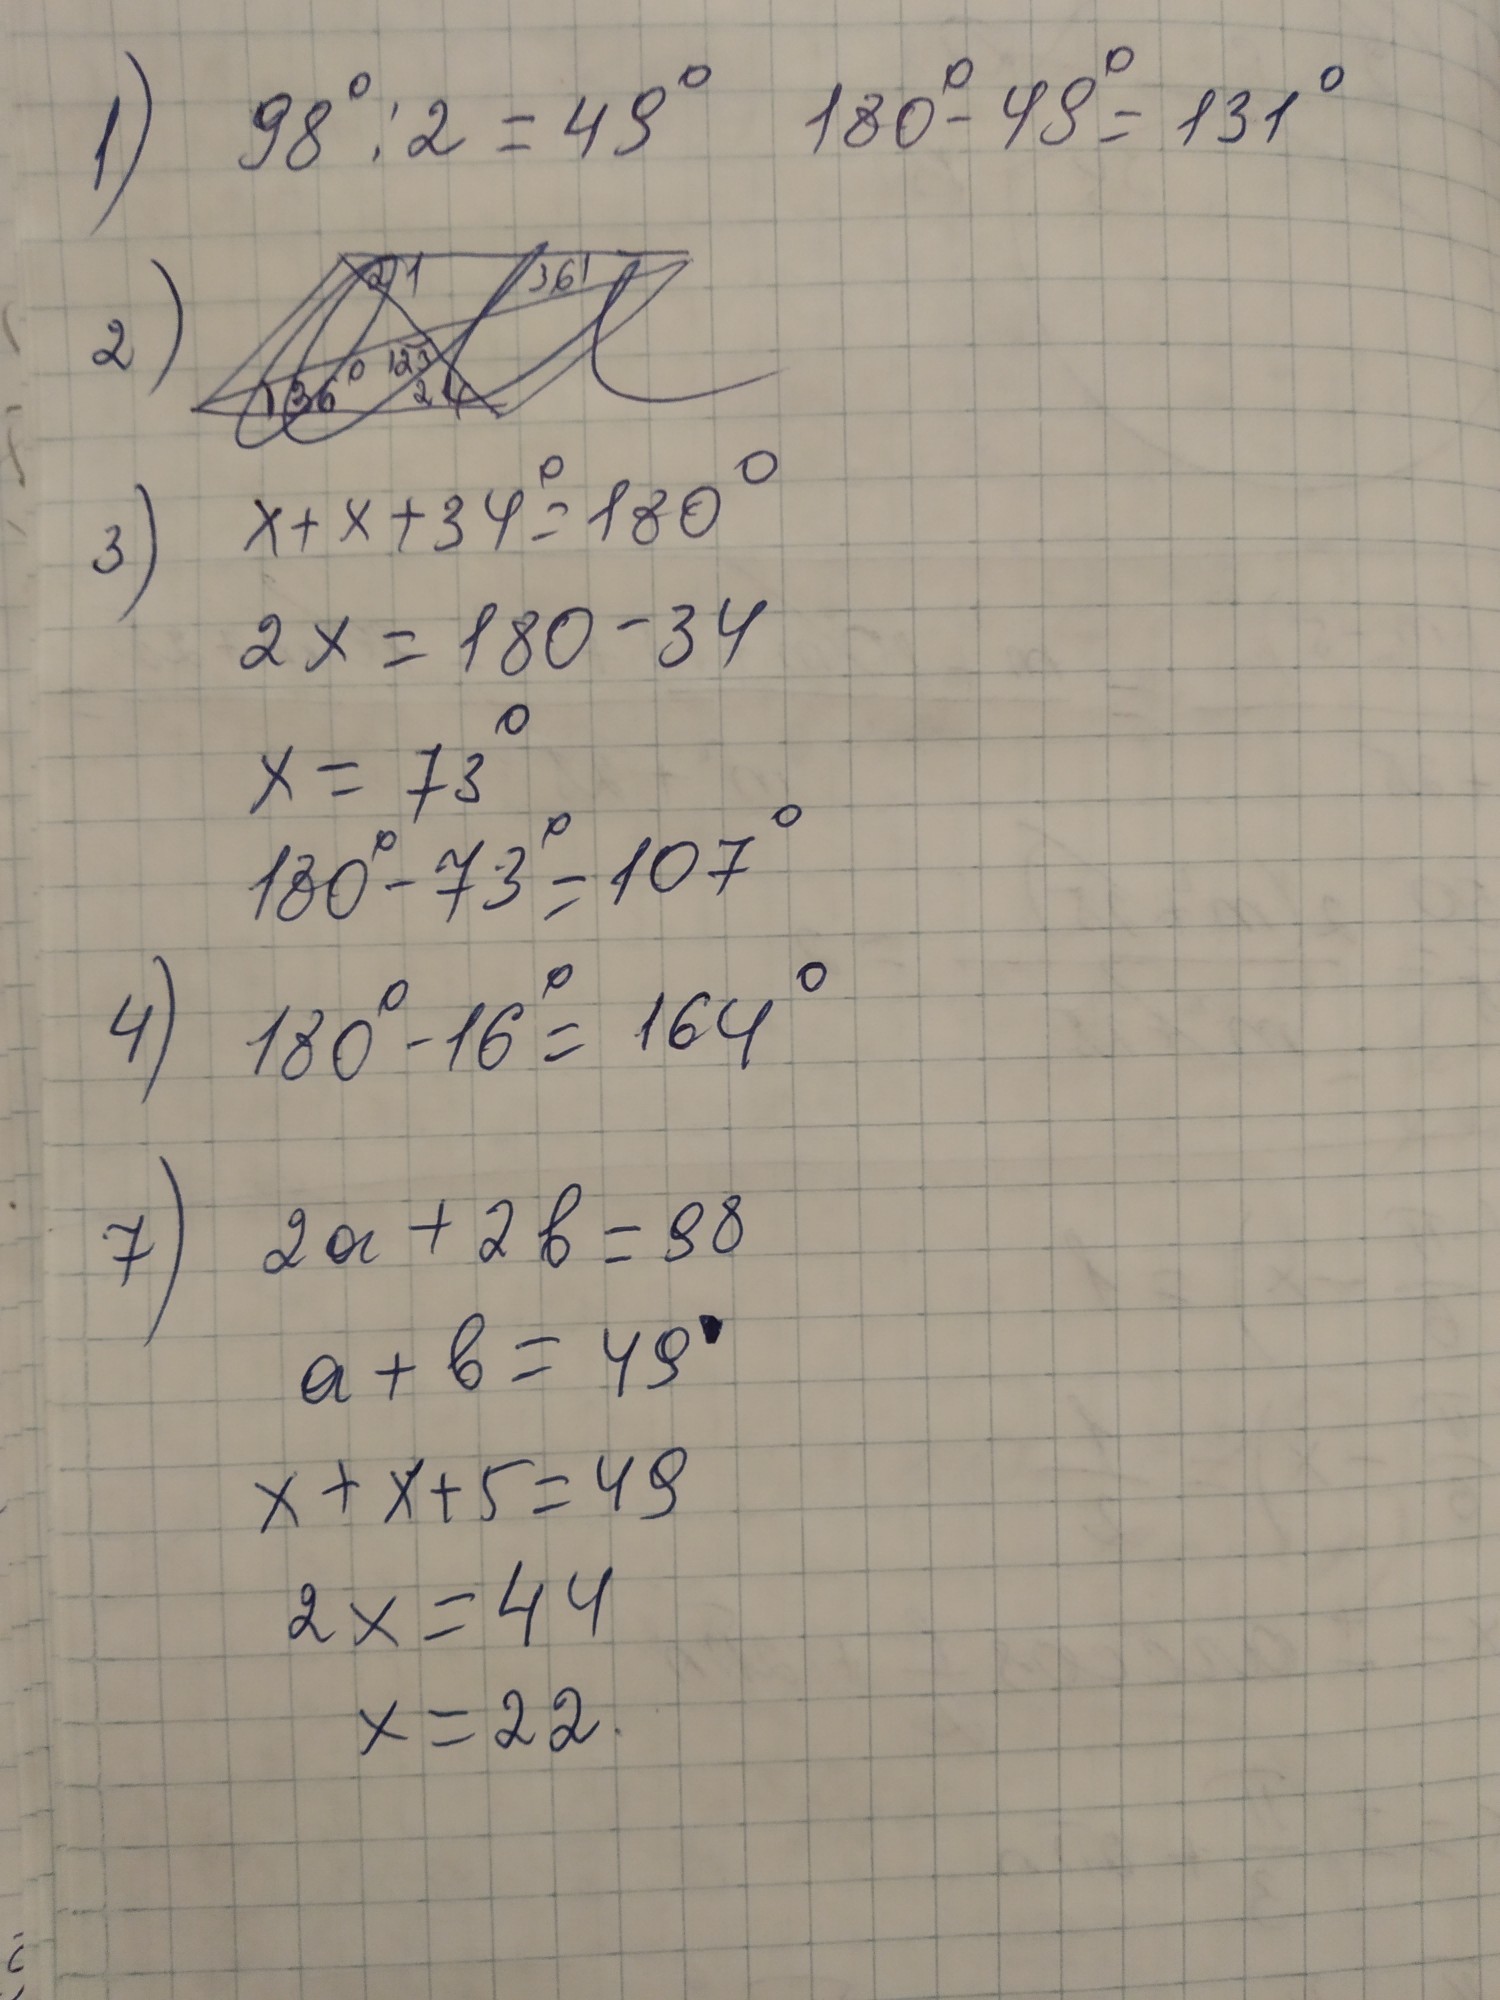 1) 98° : 2 = 49° 180° - 49° = 131°
2)
21 361
123
136° 24
3) x + x + 34° = 180°
2x = 180 - 34
x = 73°
180° - 73° = 107°
4) 180° - 16° = 164°
7) 2a + 2b = 98
a + b = 49
x + x + 5 = 49
2x = 44
x = 22.